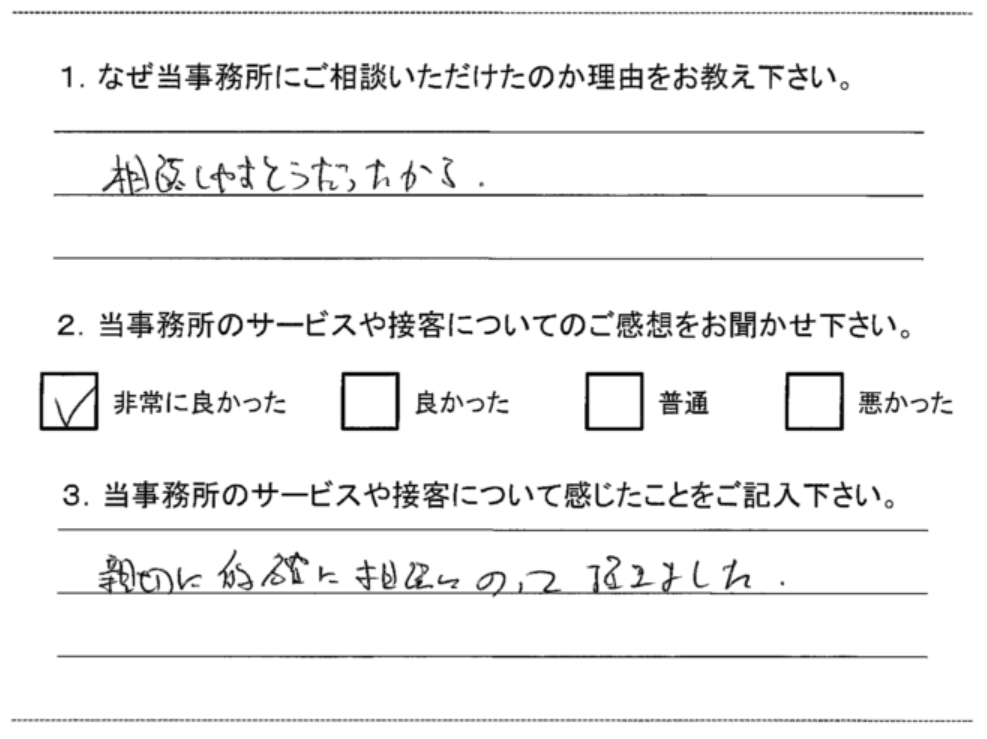 1. なぜ当事務所にご相談いただけたのか理由をお教え下さい。
相談しやすそうだったから.
2. 当事務所のサービスや接客についてのご感想をお聞かせ下さい。
非常に良かった 良かった 普通 悪かった
3. 当事務所のサービスや接客について感じたことをご記入下さい。
親切に的確に相談にのって頂きました.